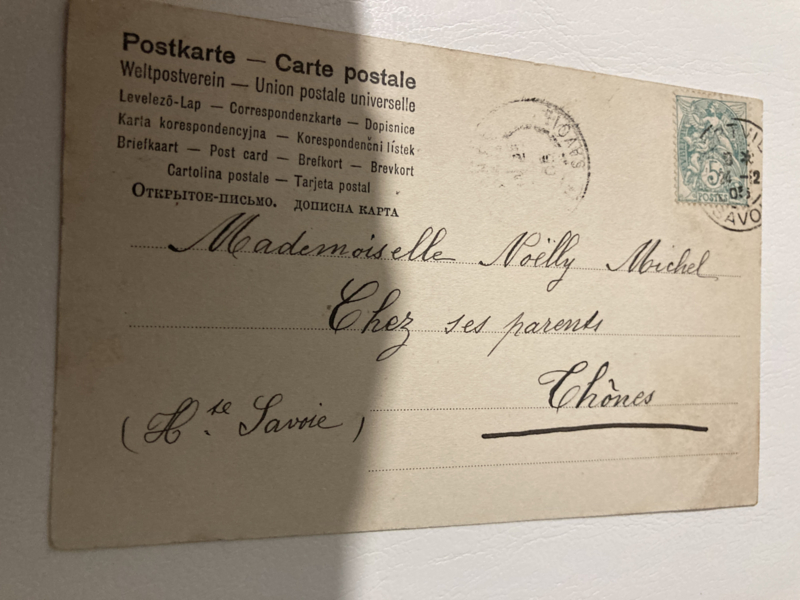 Postkarte — Carte postale
Weltpostverein — Union postale universelle
Levelező-Lap — Correspondenzkarte — Dopisnice
Karta korespondencyjna — Korespondenční lístek
Briefkaart — Post card — Brefkort — Brevkort
Cartolina postale — Tarjeta postal
Открытое-письмо. дописна карта
Mademoiselle Noëlly Michel
Chez ses parents
Thônes
(Hte. Savoie)
5
POSTES
24 -12
05
SAVO